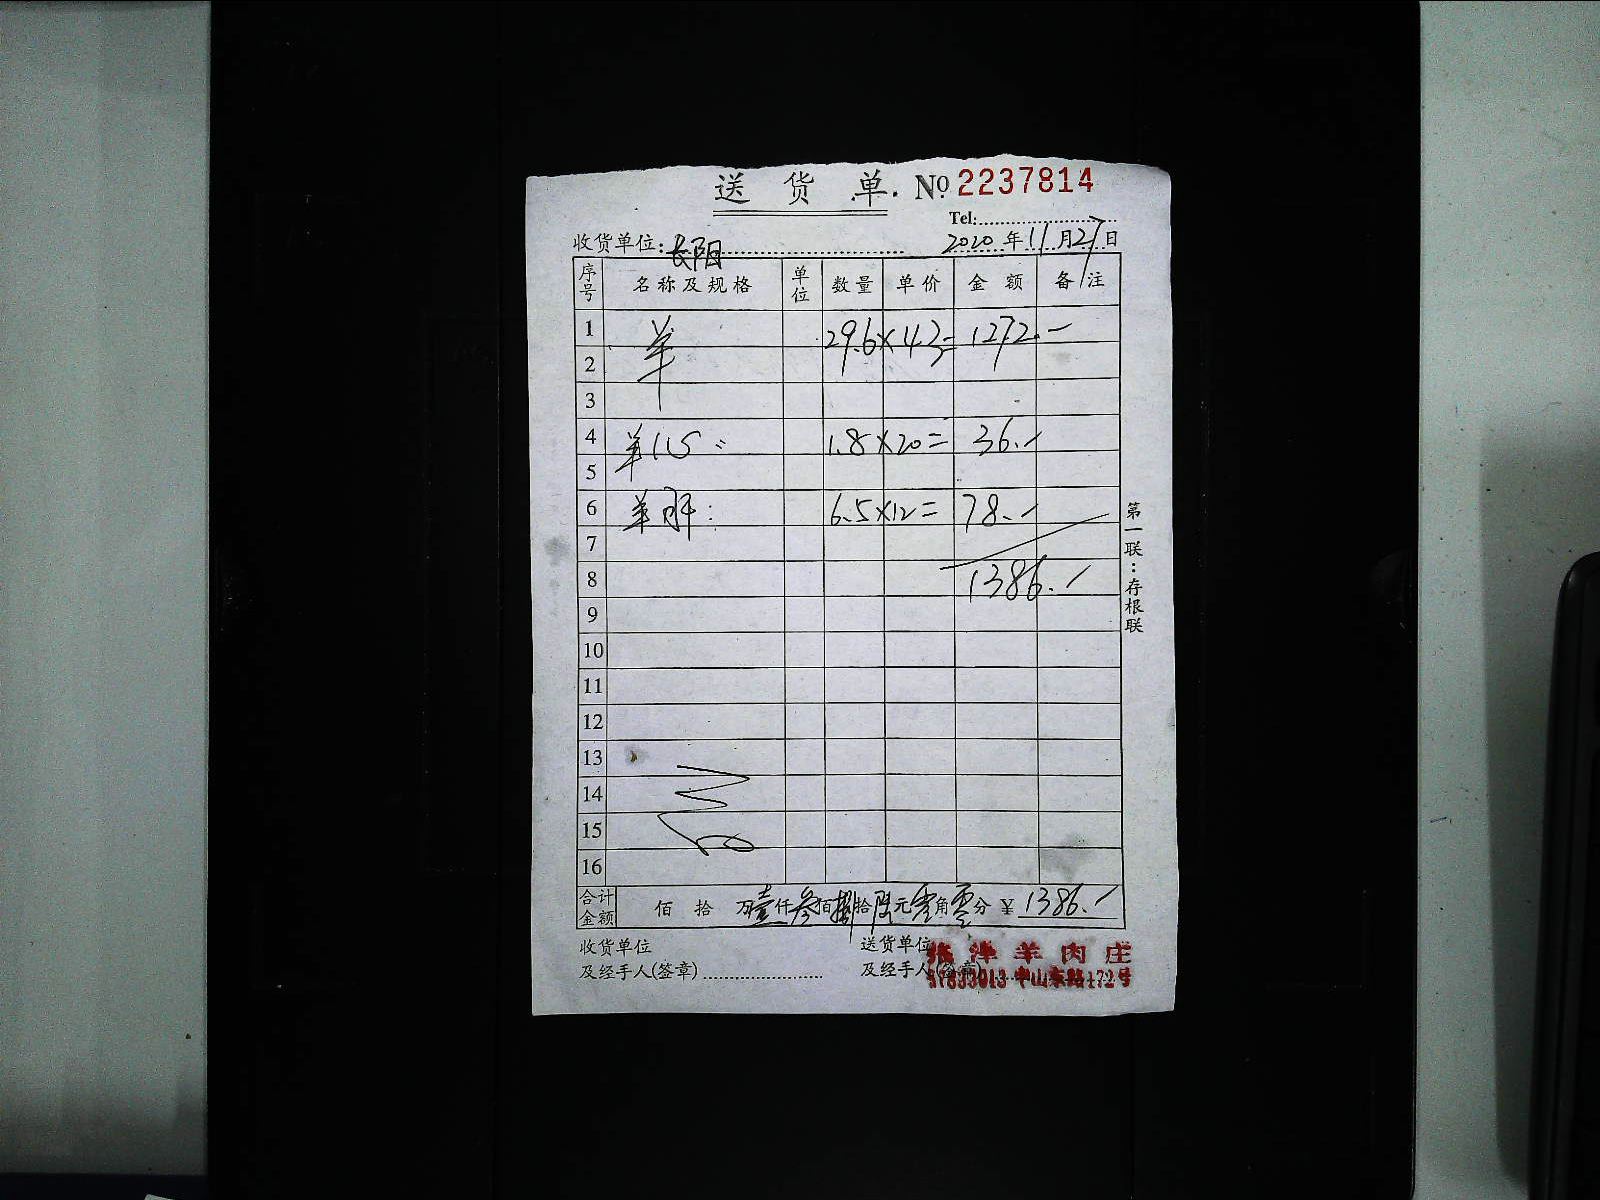 送 货 单. № 2237814
Tel:
收货单位: 长阳 2020 年 11 月 27 日
序号 名称及规格 单位 数量 单价 金额 备注
1 羊 29.6 × 43 = 1272.-
2
3
4 羊心 1.8 × 20 = 36.-
5
6 羊肝 6.5 × 12 = 78.-
7
8 1386.-
9
10
11
12
13
14
15
16
合计金额 佰 拾 万 壹 仟 叁 佰 捌 拾 陆 元 零 角 零 分 ¥ 1386.-
收货单位 送货单位
及经手人(签章) 及经手人(签章)
津羊肉庄
中山东路172号
第一联:存根联